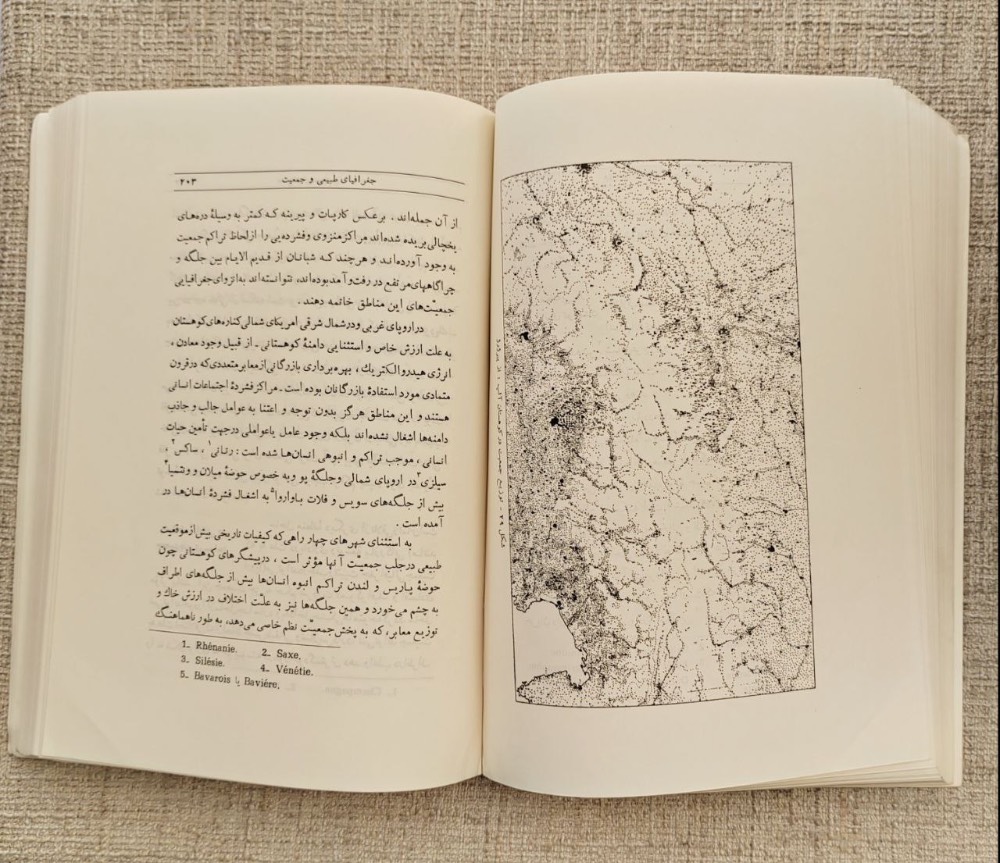 جغرافیای طبیعی و جمعیت
۲۰۳
از آن جمله‌اند . برعکس کارپات و پیرینه که کمتر به وسیلهٔ دره‌های
یخچالی بریده شده‌اند مراکز منزوی و فشرده‌یی را از لحاظ تراکم جمعیت
به وجود آورده‌اند و هرچند که شبانان از قدیم الایام بین جلگه و
چراگاههای مرتفع در رفت و آمد بوده‌اند، نتوانسته‌اند به انزوای جغرافیایی
جمعیّت‌های این مناطق خاتمه دهند .
در اروپای غربی و در شمال شرقی امریکای شمالی کناره‌های کوهستان
به علت ارزش خاص و استثنایی دامنهٔ کوهستانی ـ از قبیل وجود معادن ،
انرژی هیدروالکتریك ، بهره‌برداری بازرگانی از معابر متعددی که در قرون
متمادی مورد استفادهٔ بازرگانان بوده است ـ مراکز فشردهٔ اجتماعات انسانی
هستند و این مناطق هرگز بدون توجه و اعتنا به عوامل جالب و جاذب
دامنه‌ها اشغال نشده‌اند بلکه وجود عامل یا عواملی در جهت تأمین حیات
انسانی ، موجب تراکم و انبوهی انسان‌ها شده است : رنانی۱ ، ساکس۲ ،
سیلزی۳ در اروپای شمالی و جلگهٔ پو و به خصوص حوضهٔ میلان و ونشیا۴
بیش از جلگه‌های سویس و فلات باواروا۵ به اشغال فشردهٔ انسان‌ها در
آمده است .
به استثنای شهرهای چهار راهی که کیفیات تاریخی بیش از موقعیت
طبیعی در جلب جمعیّت آنها مؤثر است ، در پیشگرهای کوهستانی چون
حوضهٔ پاریس و لندن تراکم انبوه انسان‌ها بیش از جلگه‌های اطراف
به چشم می‌خورد و همین جلگه‌ها نیز به علّت اختلاف در ارزش خاك و
توزیع معابر، که به پخش جمعیّت نظم خاصی می‌دهد، به طور ناهماهنگ
1_ Rhénanie. 2_ Saxe,
3_ Silésie. 4_ Vénétie.
5_ Bavarois یا Baviére,